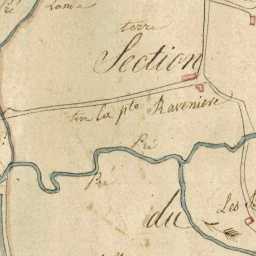 Pré
terre
Section
la pte Ravenière
Pré
Pré
du
Les